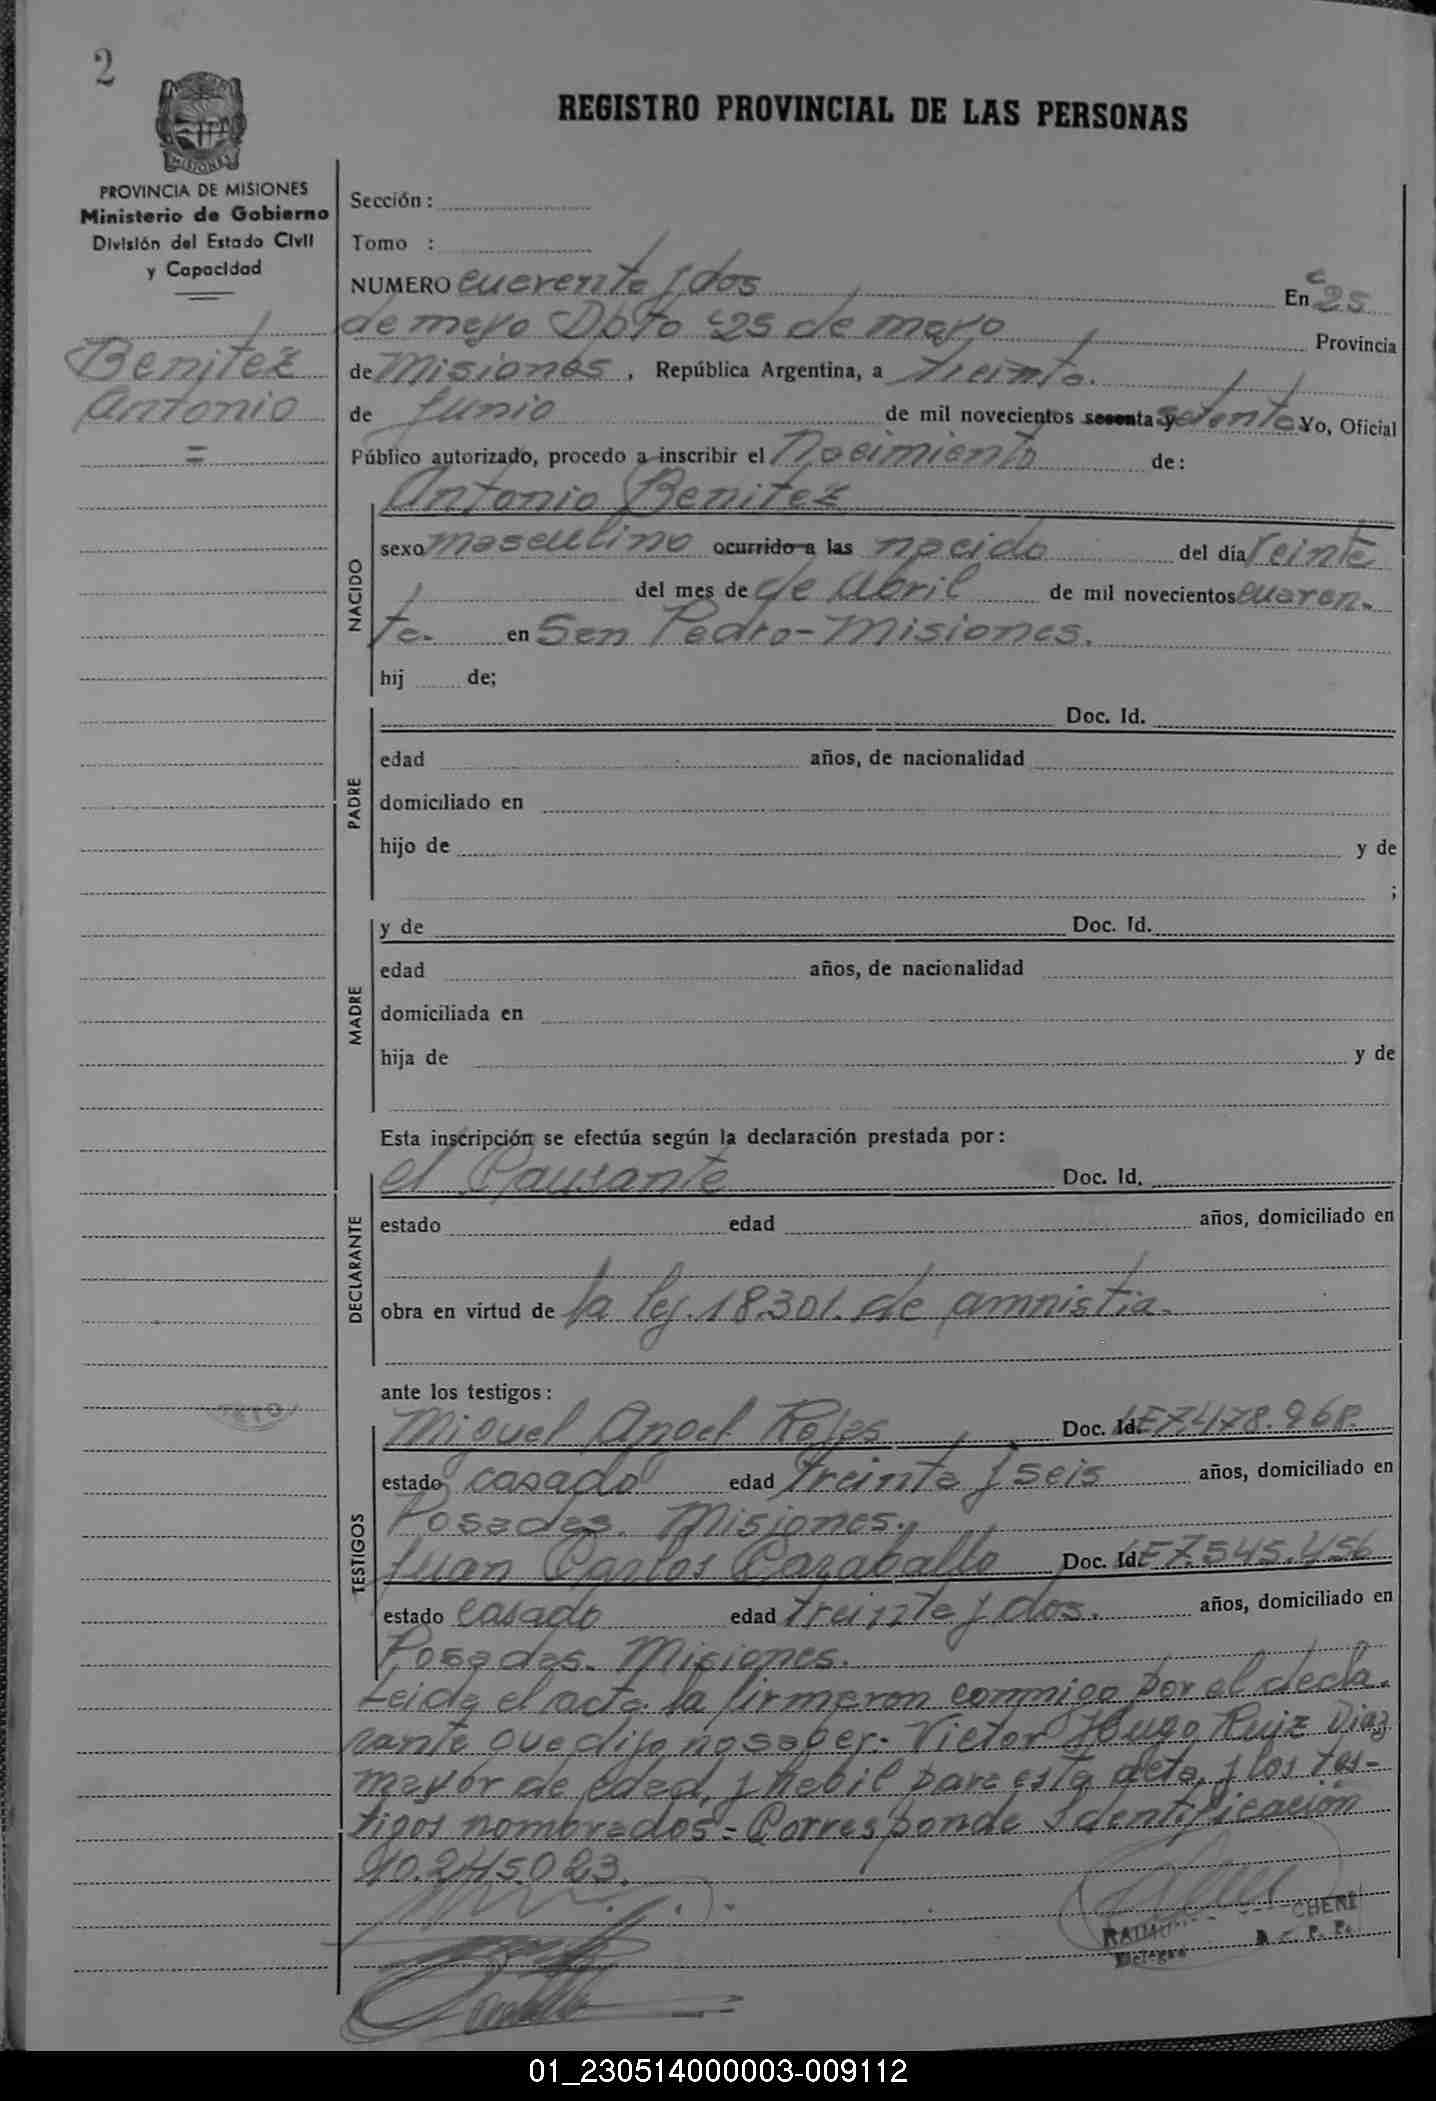 2
MISIONES
PROVINCIA DE MISIONES
Ministerio de Gobierno
División del Estado Civil
y Capacidad
Benitez
Antonio
=
REGISTRO PROVINCIAL DE LAS PERSONAS
Sección:
Tomo :
NUMERO cuarenta y dos En "25
de mayo Dpto "25 de mayo Provincia
de Misiones, República Argentina, a treinta.
de Junio de mil novecientos sesenta y setenta Yo, Oficial
Público autorizado, procedo a inscribir el Nacimiento de:
Antonio Benitez
NACIDO
sexo masculino ocurrido a las nacido del día veinte
del mes de de Abril de mil novecientos cuaren-
ta. en San Pedro-Misiones.
hij de;
PADRE
Doc. Id.
edad años, de nacionalidad
domiciliado en
hijo de y de
;
MADRE
y de Doc. Id.
edad años, de nacionalidad
domiciliada en
hija de y de
Esta inscripción se efectúa según la declaración prestada por:
DECLARANTE
el Causante Doc. Id.
estado edad años, domiciliado en
obra en virtud de la ley. 18.301. de amnistia.
ante los testigos:
TESTIGOS
Miguel Angel Rojas Doc. Id. LE 7.478.968.
estado casado edad treinta y seis años, domiciliado en
Posadas. Misiones.
Juan Carlos Cazaballo Doc. Id. LE 7.545.456
estado casado edad treinta y dos. años, domiciliado en
Posadas. Misiones.
Leida el acta la firmaron conmigo por el decla-
rante que dijo no saber. Victor Hugo Ruiz Diaz
mayor de edad, y habil para esta acta, y los tes-
tigos nombrados = Corresponde Identificación
10.245.023.
01_230514000003-009112